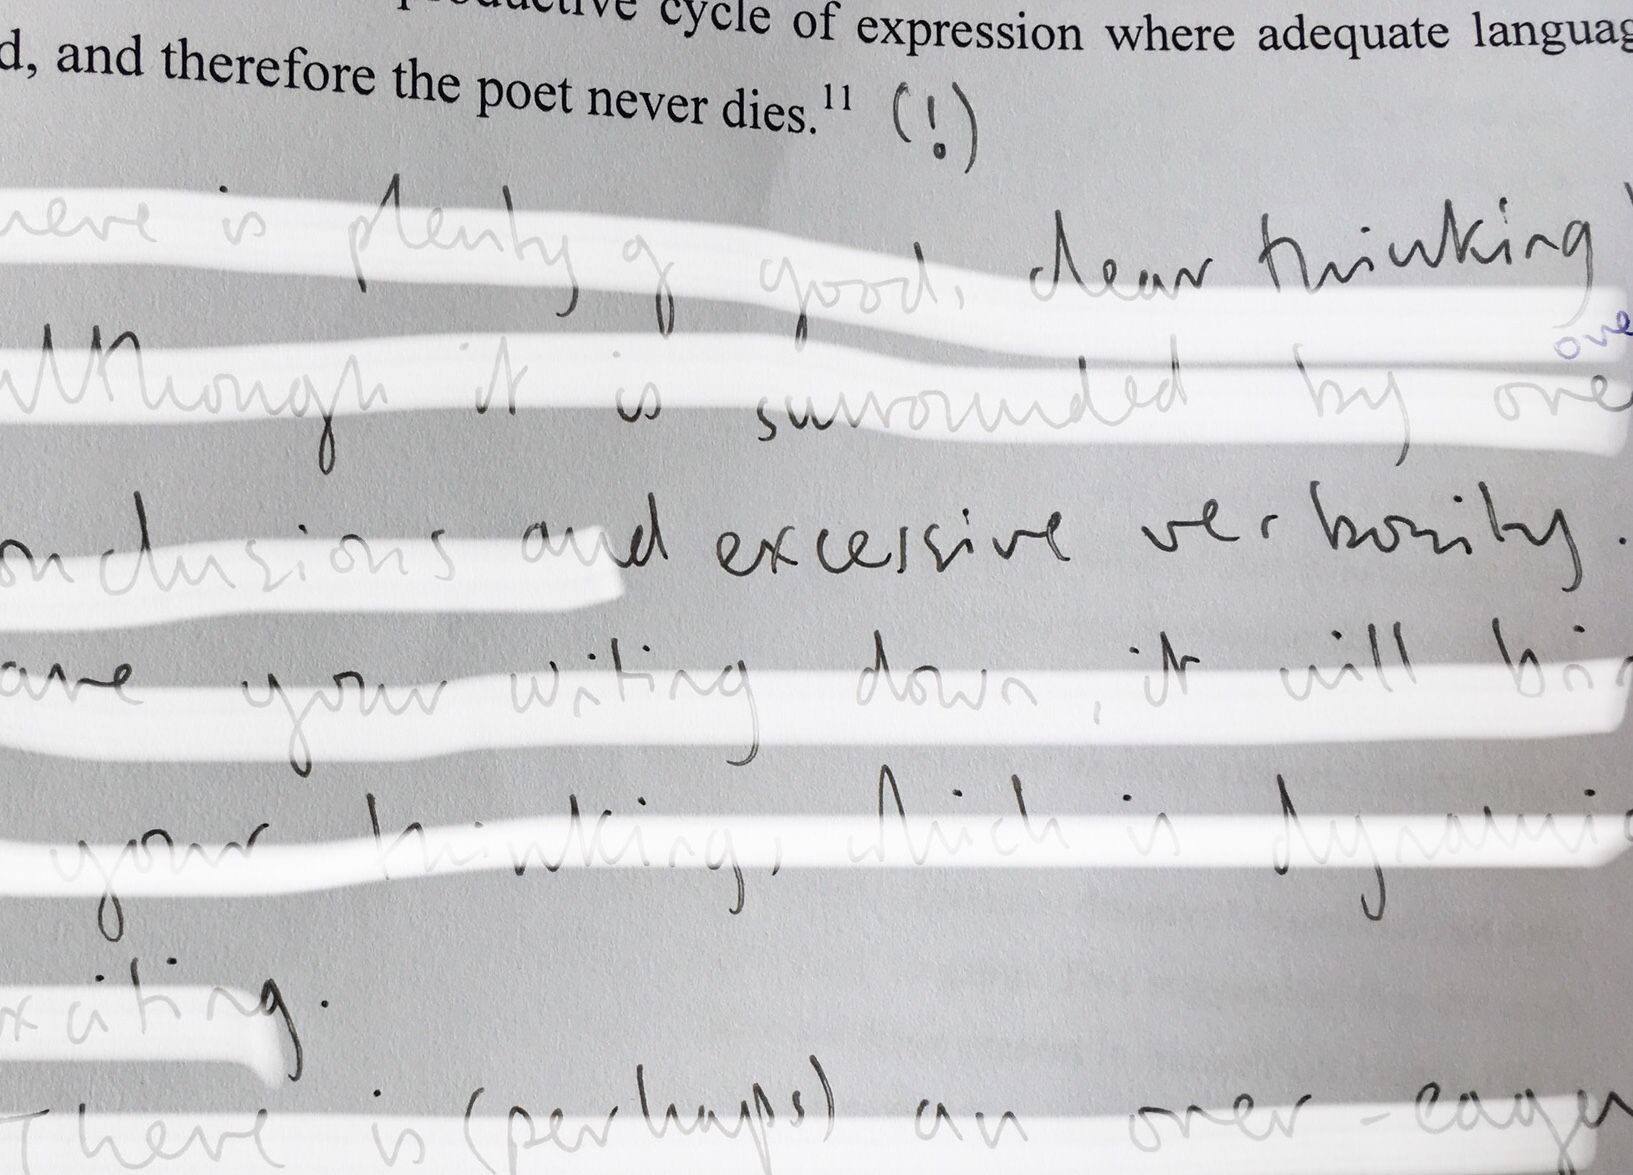 productive cycle of expression where adequate languag
d, and therefore the poet never dies.11 (!)
here is plenty of good, clear thinking
although it is surrounded by over
onclusions and excessive verbosity.
are your writing down, it will brin
your thinking, which is dynamic
xciting.
There is (perhaps) an over-eager